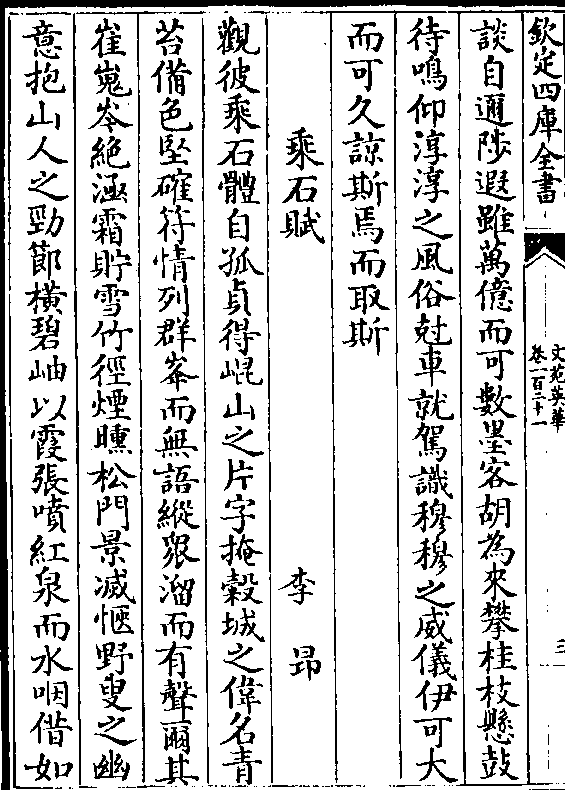 欽定四庫全書
文苑英華
卷一百二十一
三
談自邇陟遐雖萬億而可數墨客胡為來攀桂枝懸鼓
待鳴仰淳淳之風俗尅車就駕識穆穆之威儀伊可大
而可久諒斯焉而取斯
乘石賦 李昂
觀彼乘石體自孤貞得崐山之片字掩榖城之偉名青
苔備色堅確符情列群峯而無語縱溜而有聲爾其
崔嵬岑絶涵霜貯雪竹徑煙曛松門景滅愜野叟之幽
意抱山人之勁節横碧岫以霞張噴紅泉而水咽借如